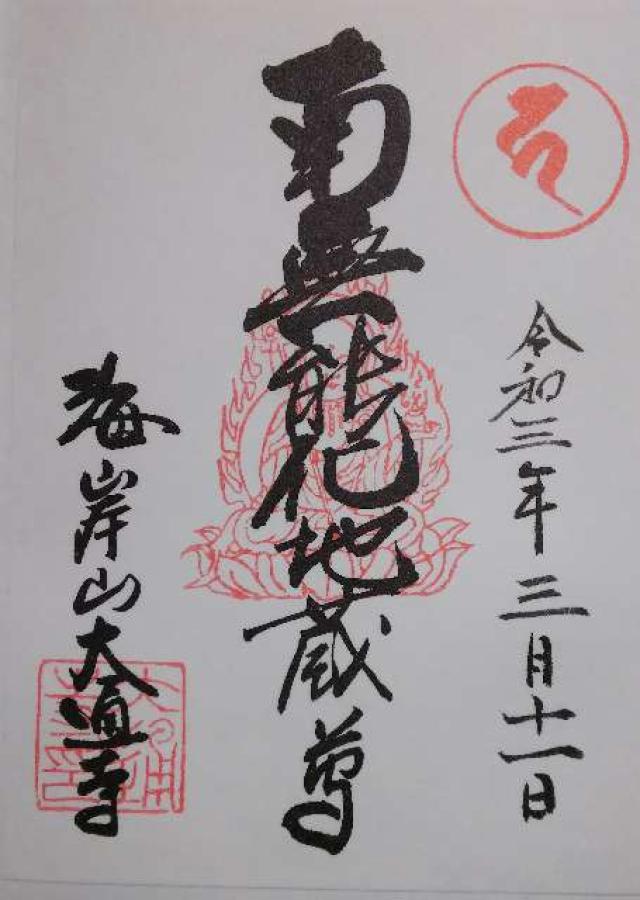 令和三年三月十一日
南無能化地蔵尊
海岸山大直寺